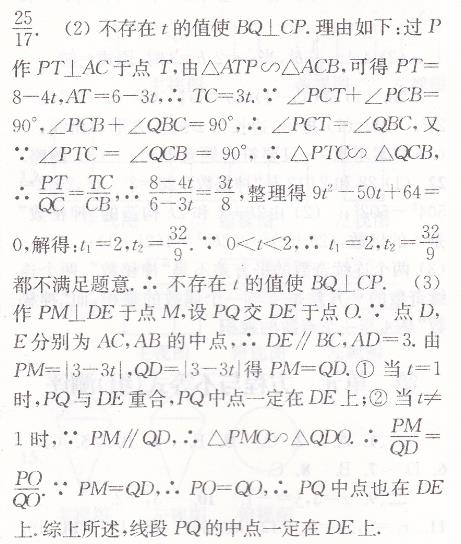 25/17. (2) 不存在 t 的值使 BQ⊥CP. 理由如下:过 P
作 PT⊥AC于点 T,由△ATP∽△ACB,可得 PT=
8-4t,AT=6-3t,∴ TC=3t.∵ ∠PCT+∠PCB=
90°,∠PCB+∠QBC=90°,∴ ∠PCT=∠QBC,又
∵ ∠PTC = ∠QCB = 90°, ∴ △PTC∽ △QCB,
∴ PT/QC=TC/CB,∴ (8-4t)/(6-3t)=3t/8,整理得 9t²-50t+64=
0,解得:t₁=2,t₂=32/9.∵ 0<t<2,∴ t₁=2,t₂=32/9
都不满足题意.∴ 不存在 t 的值使 BQ⊥CP. (3)
作 PM⊥DE于点 M,设 PQ交 DE于点 O.∵ 点 D,
E分别为 AC,AB 的中点,∴ DE∥BC,AD=3. 由
PM=|3-3t|,QD=|3-3t|得 PM=QD.① 当 t=1
时,PQ与 DE重合,PQ中点一定在 DE上;② 当 t≠
1 时,∵ PM∥QD,∴ △PMO∽△QDO. ∴ PM/QD=
PO/QO.∵ PM=QD,∴ PO=QO,∴ PQ 中点也在 DE
上. 综上所述,线段 PQ的中点一定在 DE上.